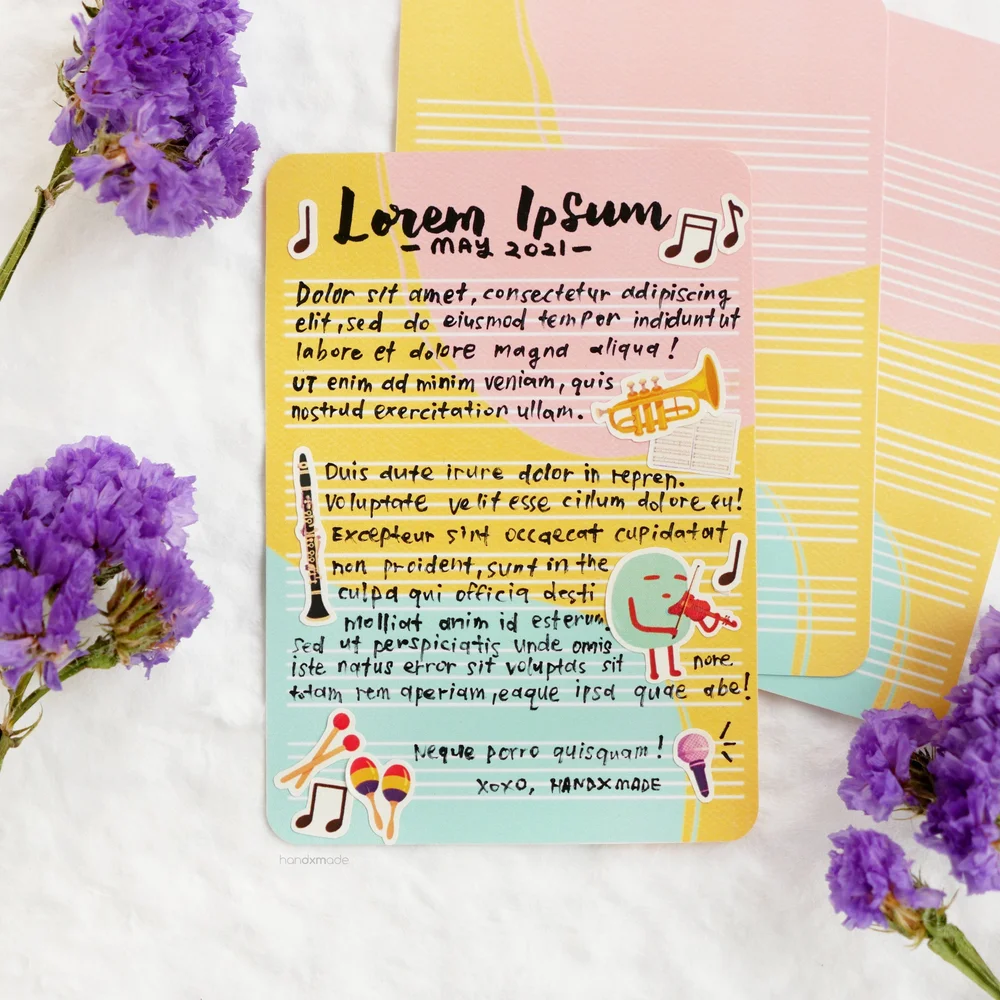 Lorem Ipsum
- MAY 2021 -
Dolor sit amet, consectetur adipiscing
elit, sed do eiusmod tempor indiduntut
labore et dolore magna aliqua!
UT enim ad minim veniam, quis
nostrud exercitation ullam.
Duis aute irure dolor in repren.
Voluptate velit esse cillum dolore eu!
Excepteur sint occaecat cupidatat
non proident, sunt in the
culpa qui officia desti
molliat anim id esterum.
sed ut perspiciatis unde omis
iste natus error sit voluptas sit nore
totam rem aperiam, eaque ipsa quae abe!
Neque porro quisquam!
XOXO, HANDXMADE
handxmade